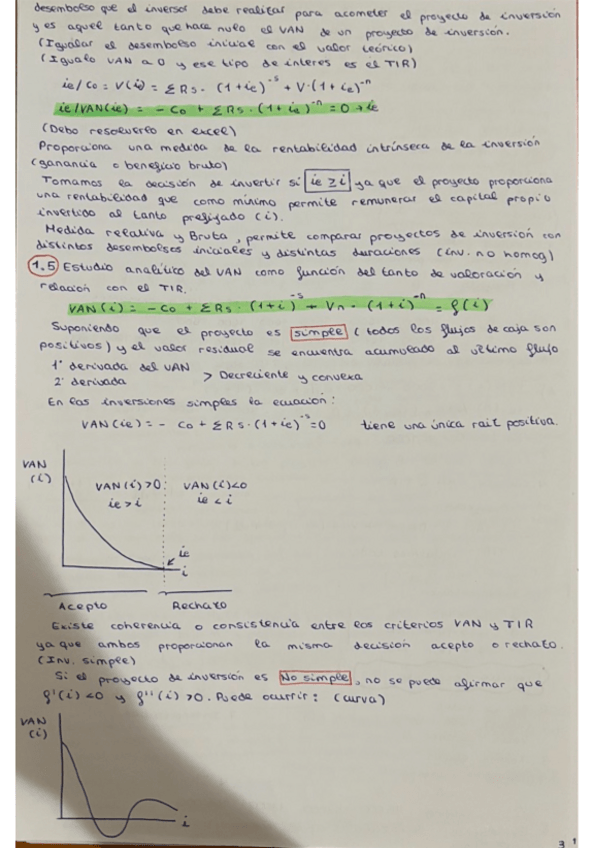 desembolso que el inversor debe realizar para acometer el proyecto de inversión
y es aquel tanto que hace nulo el VAN de un proyecto de inversión.
(Igualar el desembolso inicial con el valor teórico)
(Igualo VAN a 0 y ese tipo de interes es el TIR)
ie / Co = V(i) = Σ Rs · (1+ie)^-s + V·(1+ie)^-n
ie/VAN(ie) = - Co + Σ Rs · (1+ie)^-n = 0 → ie
(Debo resolverlo en excel)
Proporciona una medida de la rentabilidad intrínseca de la inversión
(ganancia o beneficio bruto)
Tomamos la decisión de invertir si ie ≥ i ya que el proyecto proporciona
una rentabilidad que como mínimo permite remunerar el capital propio
invertido al tanto prefijado (i).
Medida relativa y Bruta, permite comparar proyectos de inversión con
distintos desembolsos iniciales y distintas duraciones (inv. no homog)
1.5 Estudio analítico del VAN como función del tanto de valoración y
relación con el TIR.
VAN (i) = - Co + Σ Rs · (1+i)^-s + Vn · (1+i)^-n = f(i)
Suponiendo que el proyecto es simple (todos los flujos de caja son
positivos) y el valor residual se encuentra acumulado al último flujo
1ª derivada del VAN
2ª derivada > Decreciente y convexa
En las inversiones simples la ecuación:
VAN (ie) = - Co + Σ Rs · (1+ie)^-s = 0 tiene una única raíz positiva.
VAN
(i)
VAN(i)>0 VAN(i)<0
ie > i ie < i
ie
i
Acepto Rechazo
Existe coherencia o consistencia entre los criterios VAN y TIR
ya que ambos proporcionan la misma decisión acepto o rechazo.
(Inv. simple)
Si el proyecto de inversión es No simple, no se puede afirmar que
f'(i) <0 y f''(i) >0. Puede ocurrir: (curva)
VAN
(i)
i
3